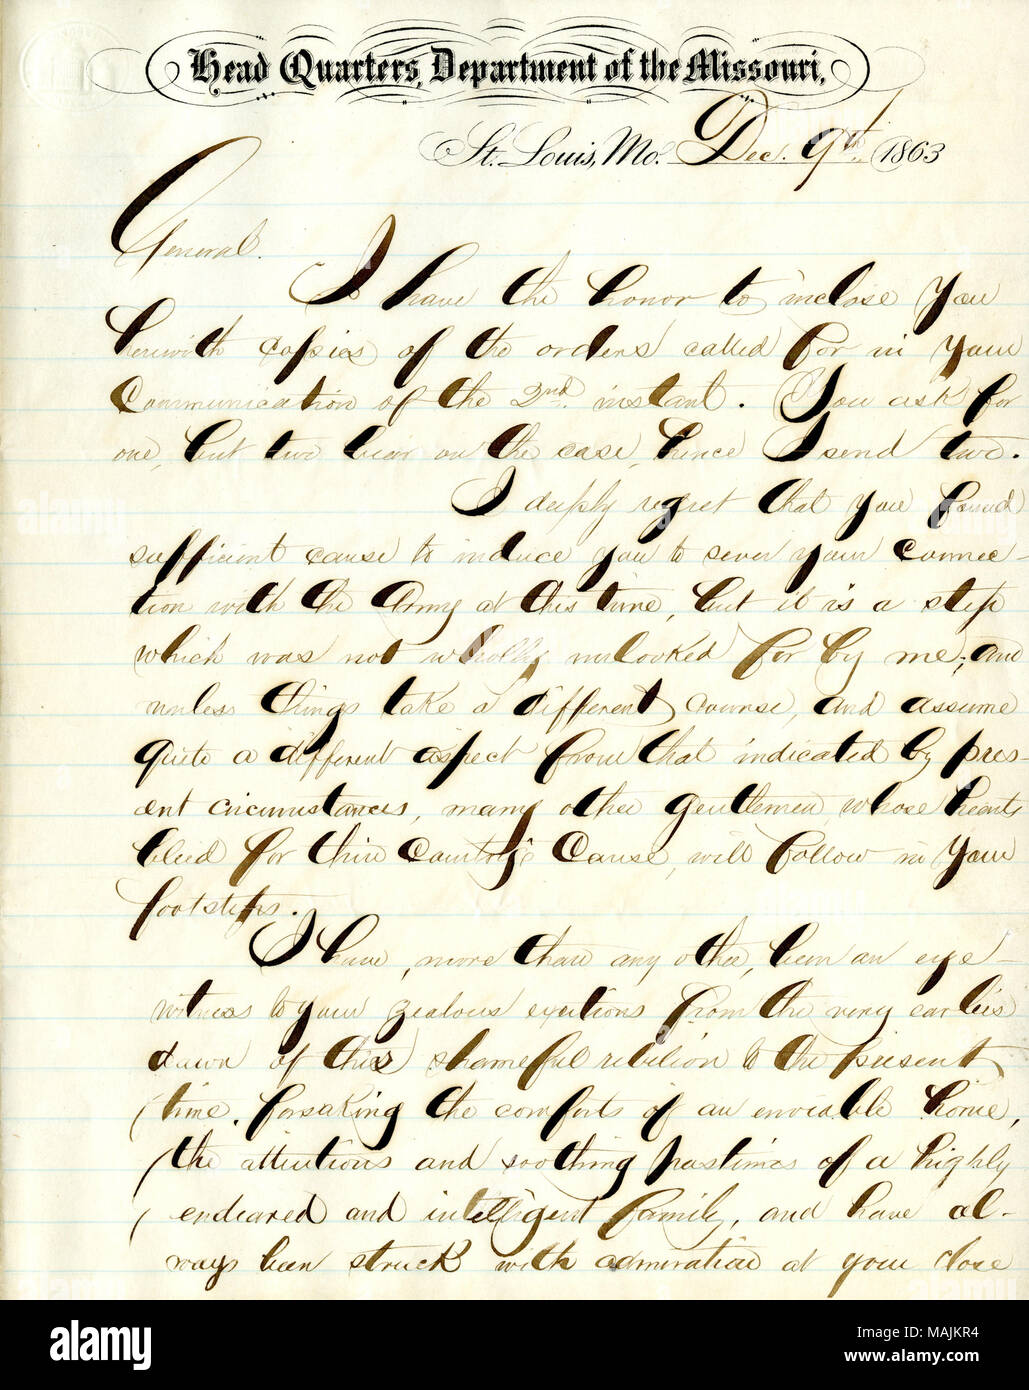 Head Quarters, Department of the Missouri,
St. Louis, Mo. Dec. 9th 1863
General.
I have the honor to inclose you
herewith copies of the orders called for in your
Communication of the 2nd. instant. You ask for
one, but two bear on the case, hence I send two.
I deeply regret that you found
sufficient cause to induce you to sever your connec-
tion with the Army at this time, but it is a step
which was not wholly unlooked for by me; and
unless things take a different course, and assume
quite a different aspect from that indicated by pres-
ent circumstances, many other gentlemen, whose hearts
bleed for their Country's Cause, will follow in your
footsteps.
I have, more than any other, been an eye-
witness to your zealous exertions from the very earlies
dawn of this shameful rebelion to the present
time, forsaking the comforts of an enviable home,
the attentions and soothing pastimes of a highly
endeared and intelligent family, and have al-
ways been struck with admiration at your close
alamy
Image ID: MAJKR4
www.alamy.com